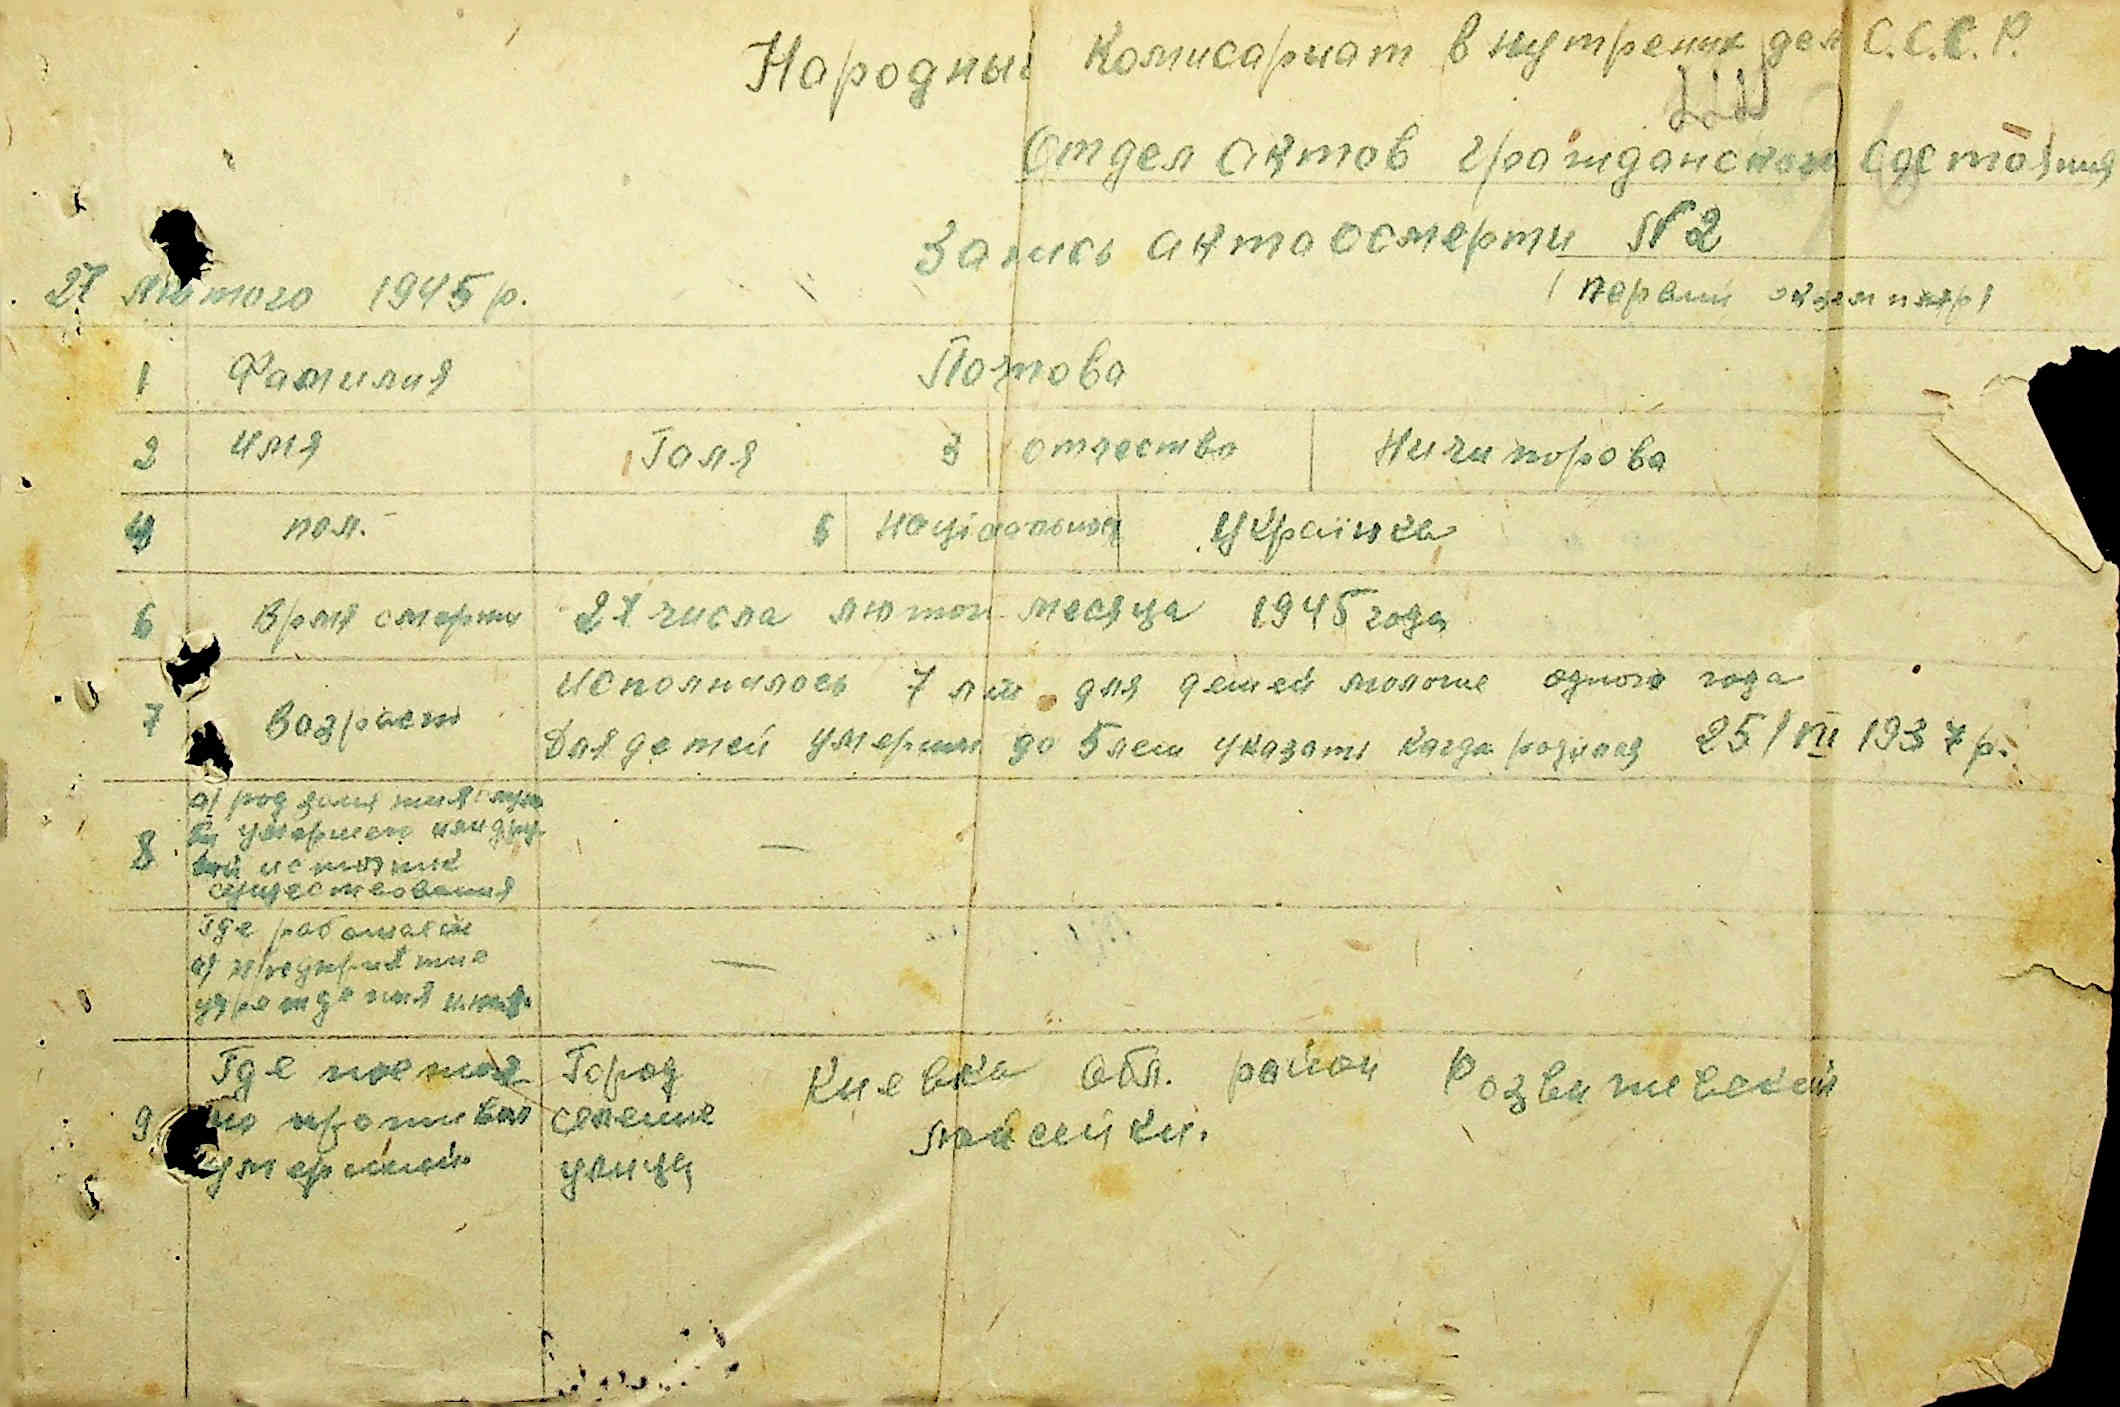 Народный Комисариат внутрених дел С.С.С.Р.
Отдел актов гражданском состояния
Запись акта о смерти № 2
27 лютого 1945 р.
(первий екземпляр)
1 Фамилия
2 имя Галя 3 отчество Ничипорова
4 пол. 5 украинка
6 время смерти 27 числа лютои месяца 1945 года
7 Возраст Исполнилось 7 лет для детей моложе одного года
Для детей умерших до 5 лет указать когда родился 25/VII 1937 р.
8 а)
умершем или
источник
существования
—
Где работает
а) предприятие
учреждения
—
9 Где
умерший
Город
селение
улица
Киевка обл. район Розважевский